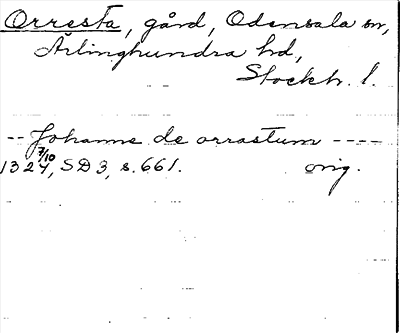 Orresta, gård, Odensala sn,
Ärlinghundra hd,
Stockh. l.
-- Johanne de orrastum ----
1324 7/10, SD 3, s. 661. orig.